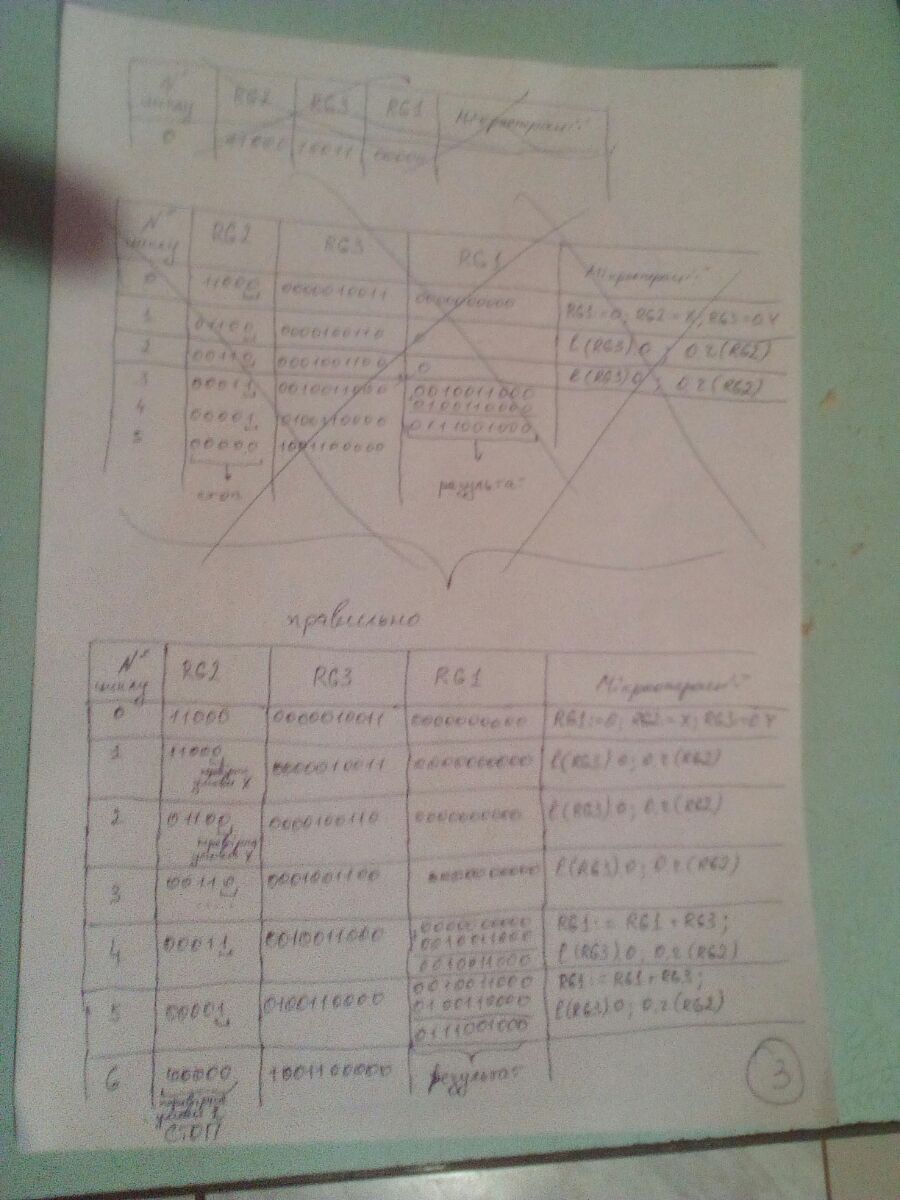 N° циклу RG2 RG3 RG1 Мікрооперації
0 11000 10011 00000
N° циклу RG2 RG3 RG1 Мікрооперації
0 11000 0000010011 0000000000 RG1:=0; RG2:=X; RG3:=0.Y
1 01100 0000100110 0 l(RG3).0; 0.r(RG2)
2 00110 0001001100 0 l(RG3).0; 0.r(RG2)
3 00011 0010011000 0010011000
4 00001 0100110000 0100110000
5 00000 1001100000 0111001000
стоп результат
правильно
N° циклу RG2 RG3 RG1 Мікрооперації
0 11000 0000010011 0000000000 RG1:=0; RG2:=X; RG3:=0.Y
1 11000 0000010011 0000000000 l(RG3).0; 0.r(RG2)
2 01100 0000100110 0000000000 l(RG3).0; 0.r(RG2)
3 00110 0001001100 0000000000 l(RG3).0; 0.r(RG2)
0000000000 RG1:=RG1+RG3;
4 00011 0010011000 0010011000
0010011000 l(RG3).0; 0.r(RG2)
0010011000 RG1:=RG1+RG3;
5 00001 0100110000 0100110000 l(RG3).0; 0.r(RG2)
0111001000
6 00000 1001100000 результат
СТОП
3